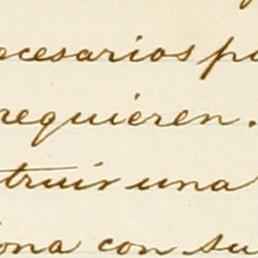 ecesarios pa
requieren.
truir una
iona con su